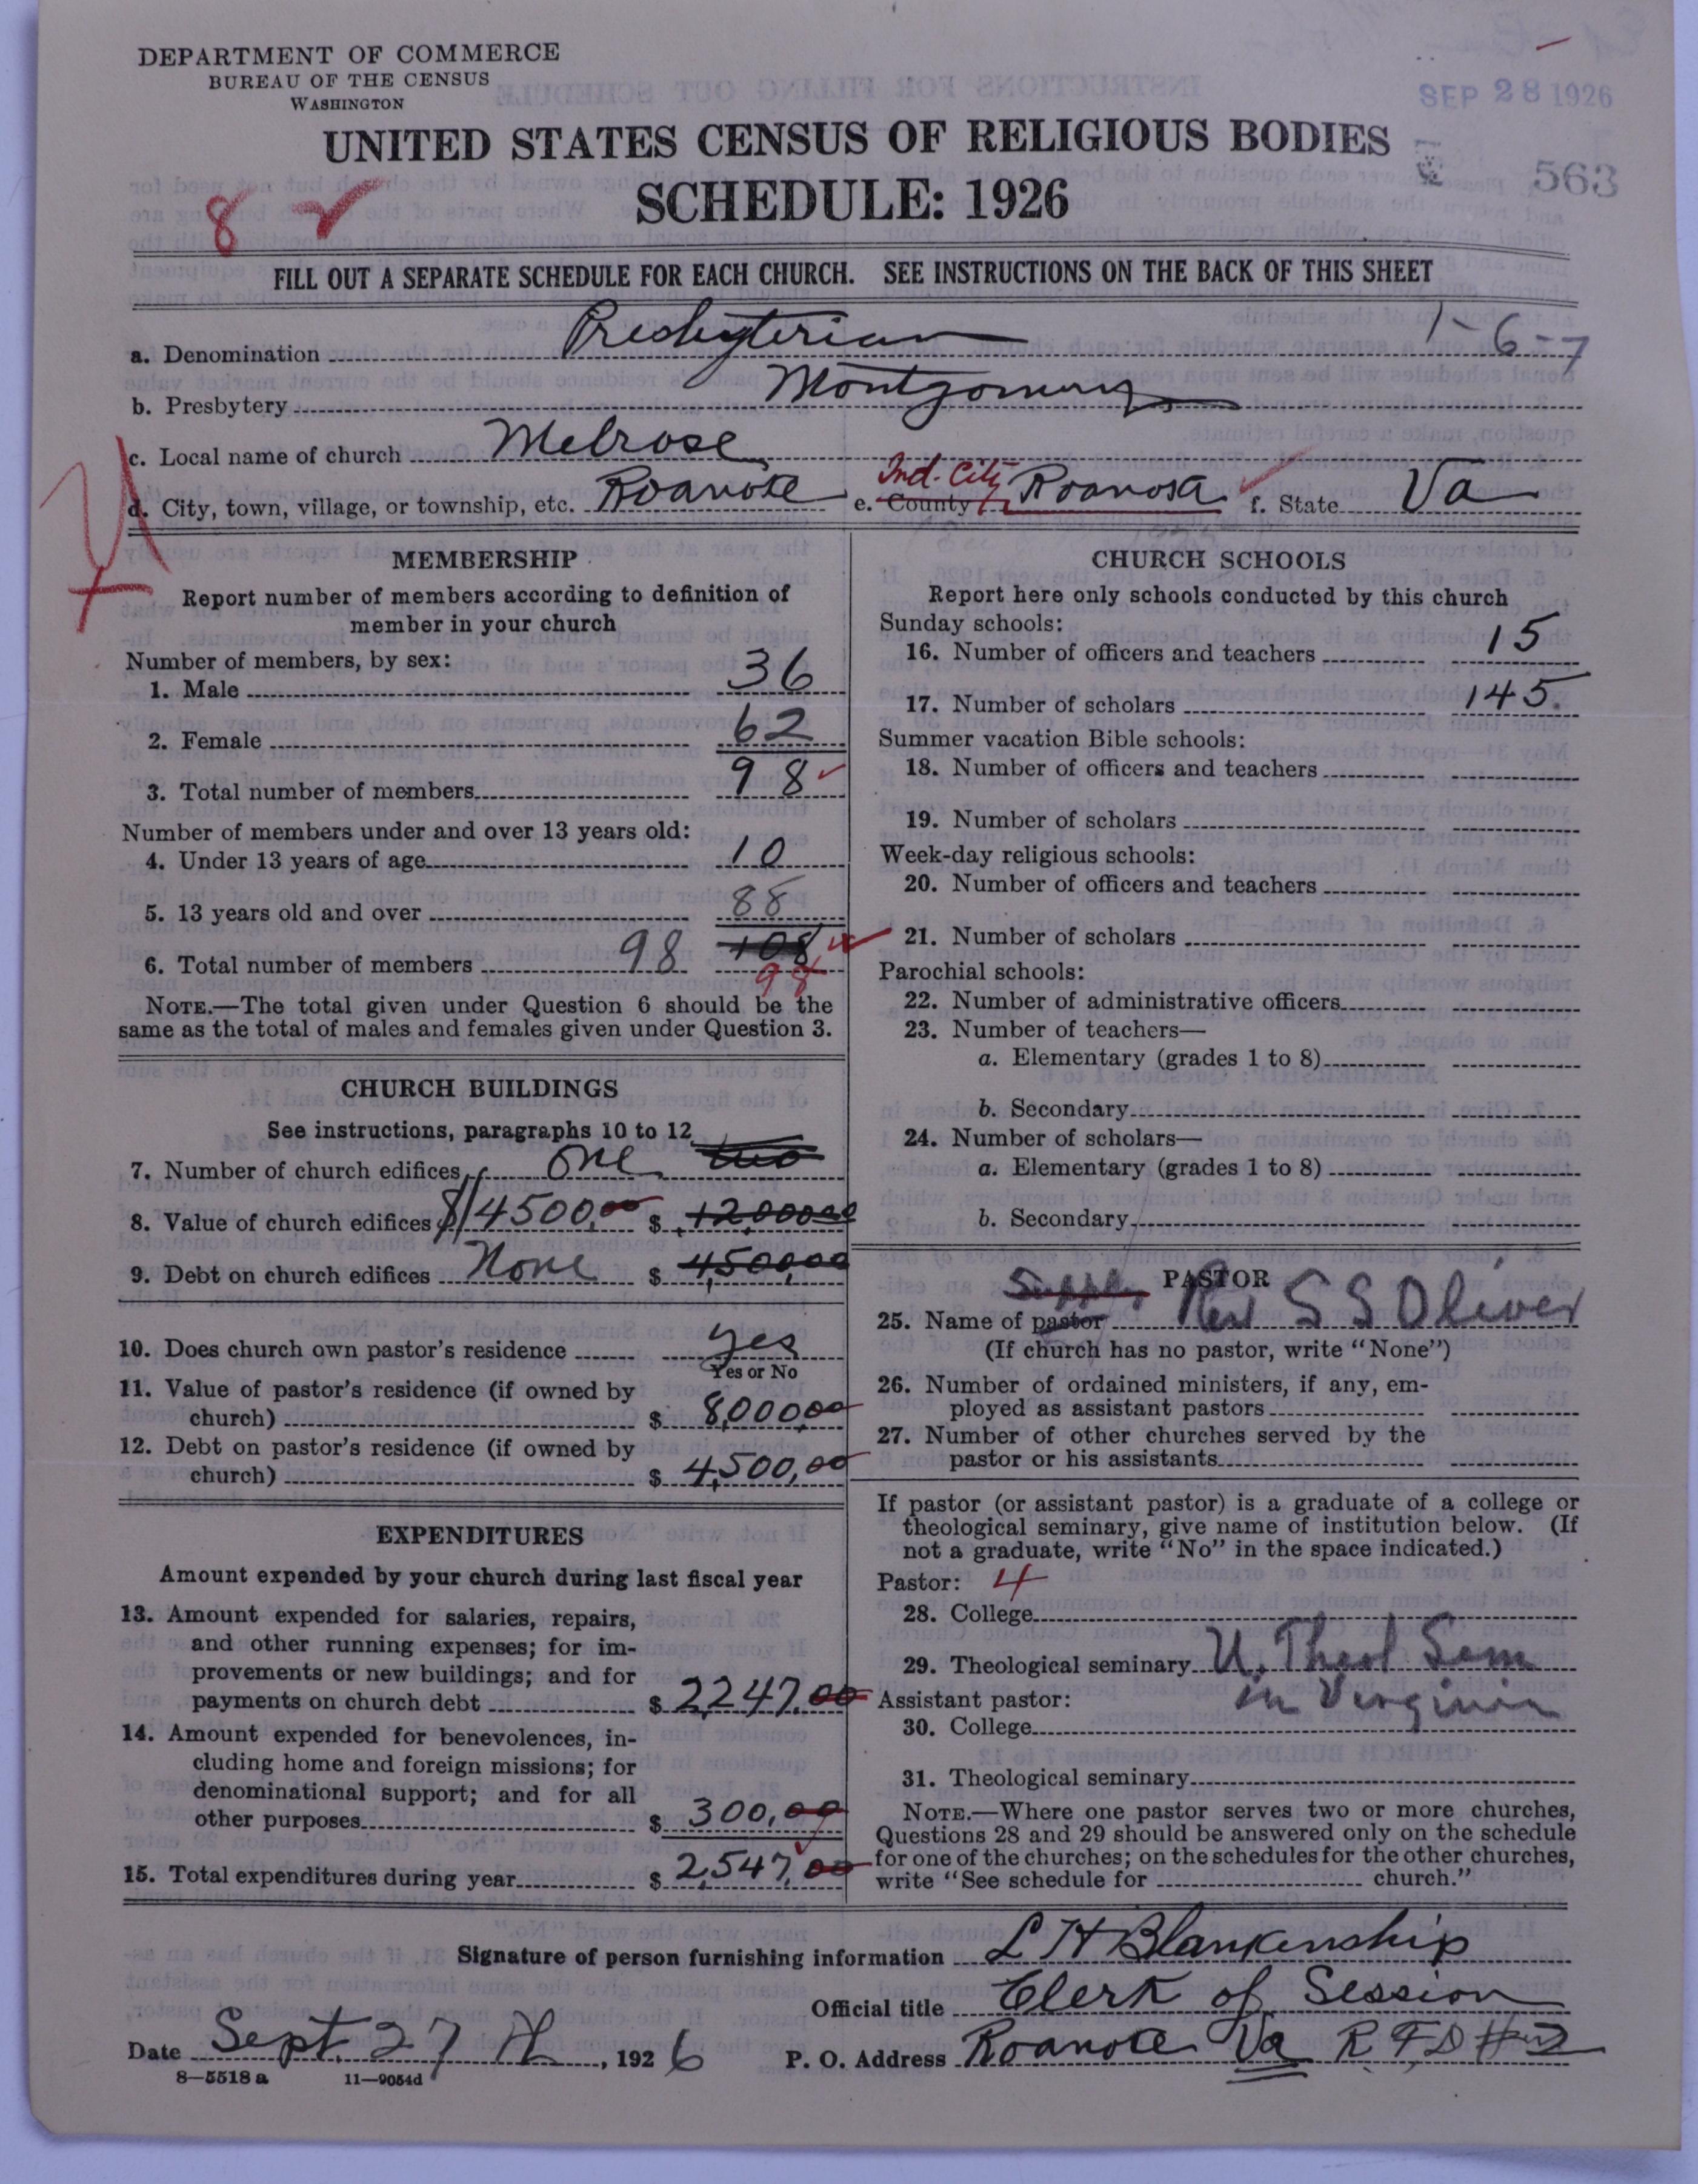 DEPARTMENT OF COMMERCE
BUREAU OF THE CENSUS
WASHINGTON
SEP 28 1926
UNITED STATES CENSUS OF RELIGIOUS BODIES
SCHEDULE: 1926
563
8
FILL OUT A SEPARATE SCHEDULE FOR EACH CHURCH. SEE INSTRUCTIONS ON THE BACK OF THIS SHEET
a. Denomination Presbyterian 1-6-7
b. Presbytery Montgomery
c. Local name of church Melrose
d. City, town, village, or township, etc. Roanoke e. County Ind. City Roanoke f. State Va
MEMBERSHIP
Report number of members according to definition of
member in your church
Number of members, by sex:
1. Male 36
2. Female 62
3. Total number of members 98
Number of members under and over 13 years old:
4. Under 13 years of age 10
5. 13 years old and over 88
6. Total number of members 98 108
98
NOTE.—The total given under Question 6 should be the
same as the total of males and females given under Question 3.
CHURCH BUILDINGS
See instructions, paragraphs 10 to 12
7. Number of church edifices One two
8. Value of church edifices $14500.00 $ 12,000.00
9. Debt on church edifices None $ 4,500.00
10. Does church own pastor's residence yes
Yes or No
11. Value of pastor's residence (if owned by
church) $ 8,000.00
12. Debt on pastor's residence (if owned by
church) $ 4,500.00
EXPENDITURES
Amount expended by your church during last fiscal year
13. Amount expended for salaries, repairs,
and other running expenses; for im-
provements or new buildings; and for
payments on church debt $ 2247.00
14. Amount expended for benevolences, in-
cluding home and foreign missions; for
denominational support; and for all
other purposes $ 300.00
15. Total expenditures during year $ 2,547.00
CHURCH SCHOOLS
Report here only schools conducted by this church
Sunday schools:
16. Number of officers and teachers 15
17. Number of scholars 145.
Summer vacation Bible schools:
18. Number of officers and teachers
19. Number of scholars
Week-day religious schools:
20. Number of officers and teachers
21. Number of scholars
Parochial schools:
22. Number of administrative officers
23. Number of teachers—
a. Elementary (grades 1 to 8)
b. Secondary
24. Number of scholars—
a. Elementary (grades 1 to 8)
b. Secondary
PASTOR
25. Name of pastor Rev S S Oliver
(If church has no pastor, write "None")
26. Number of ordained ministers, if any, em-
ployed as assistant pastors
27. Number of other churches served by the
pastor or his assistants
If pastor (or assistant pastor) is a graduate of a college or
theological seminary, give name of institution below. (If
not a graduate, write "No" in the space indicated.)
Pastor: 4
28. College
29. Theological seminary U. Theol Sem
Assistant pastor: in Virginia
30. College
31. Theological seminary
NOTE.—Where one pastor serves two or more churches,
Questions 28 and 29 should be answered only on the schedule
for one of the churches; on the schedules for the other churches,
write "See schedule for church."
Signature of person furnishing information L H Blankenship
Official title Clerk of Session
Date Sept. 27, 1926 P. O. Address Roanoke Va R F D #2
8—5518 a 11—9054d